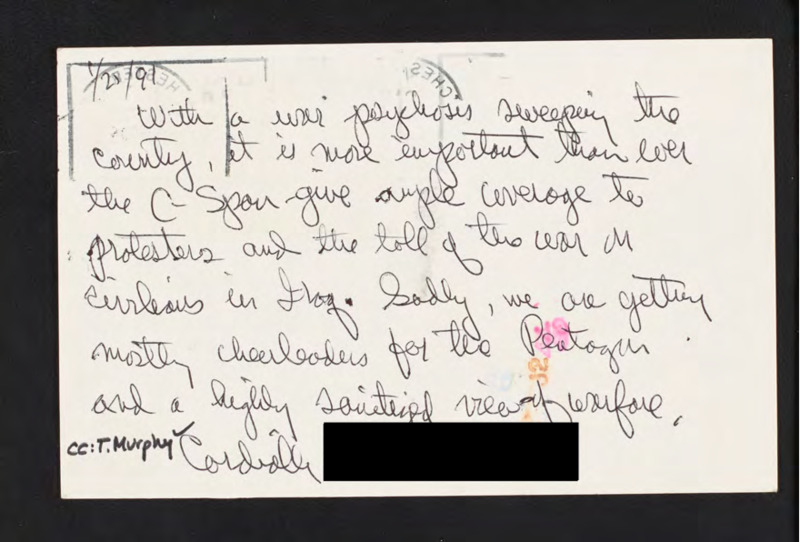 1/20/91
With a war psychosis sweeping the
country, it is more important than ever
the C-Span give ample coverage to
protesters and the toll of this war on
civilians in Iraq. Sadly, we are getting
mostly cheerleaders for the Pentagon
and a highly sanitized view of warfare.
cc: T. Murphy
Cordially
CHES